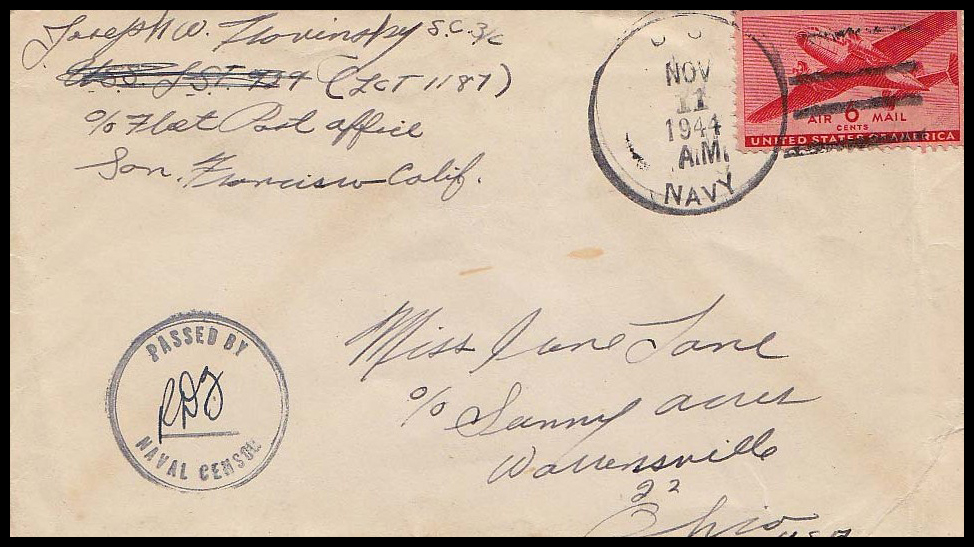 Joseph W. S.C. 3/c
U.S.S. LST (LCT 1187)
c/o Fleet Post office
San. Francisco Calif.
NOV
11
1944
A.M.
NAVY
AIR 6 MAIL
CENTS
UNITED STATES OF AMERICA
PASSED BY
NAVAL CENSOR
Miss June Lane
c/o Sunny acres
Warrensville
22
Ohio